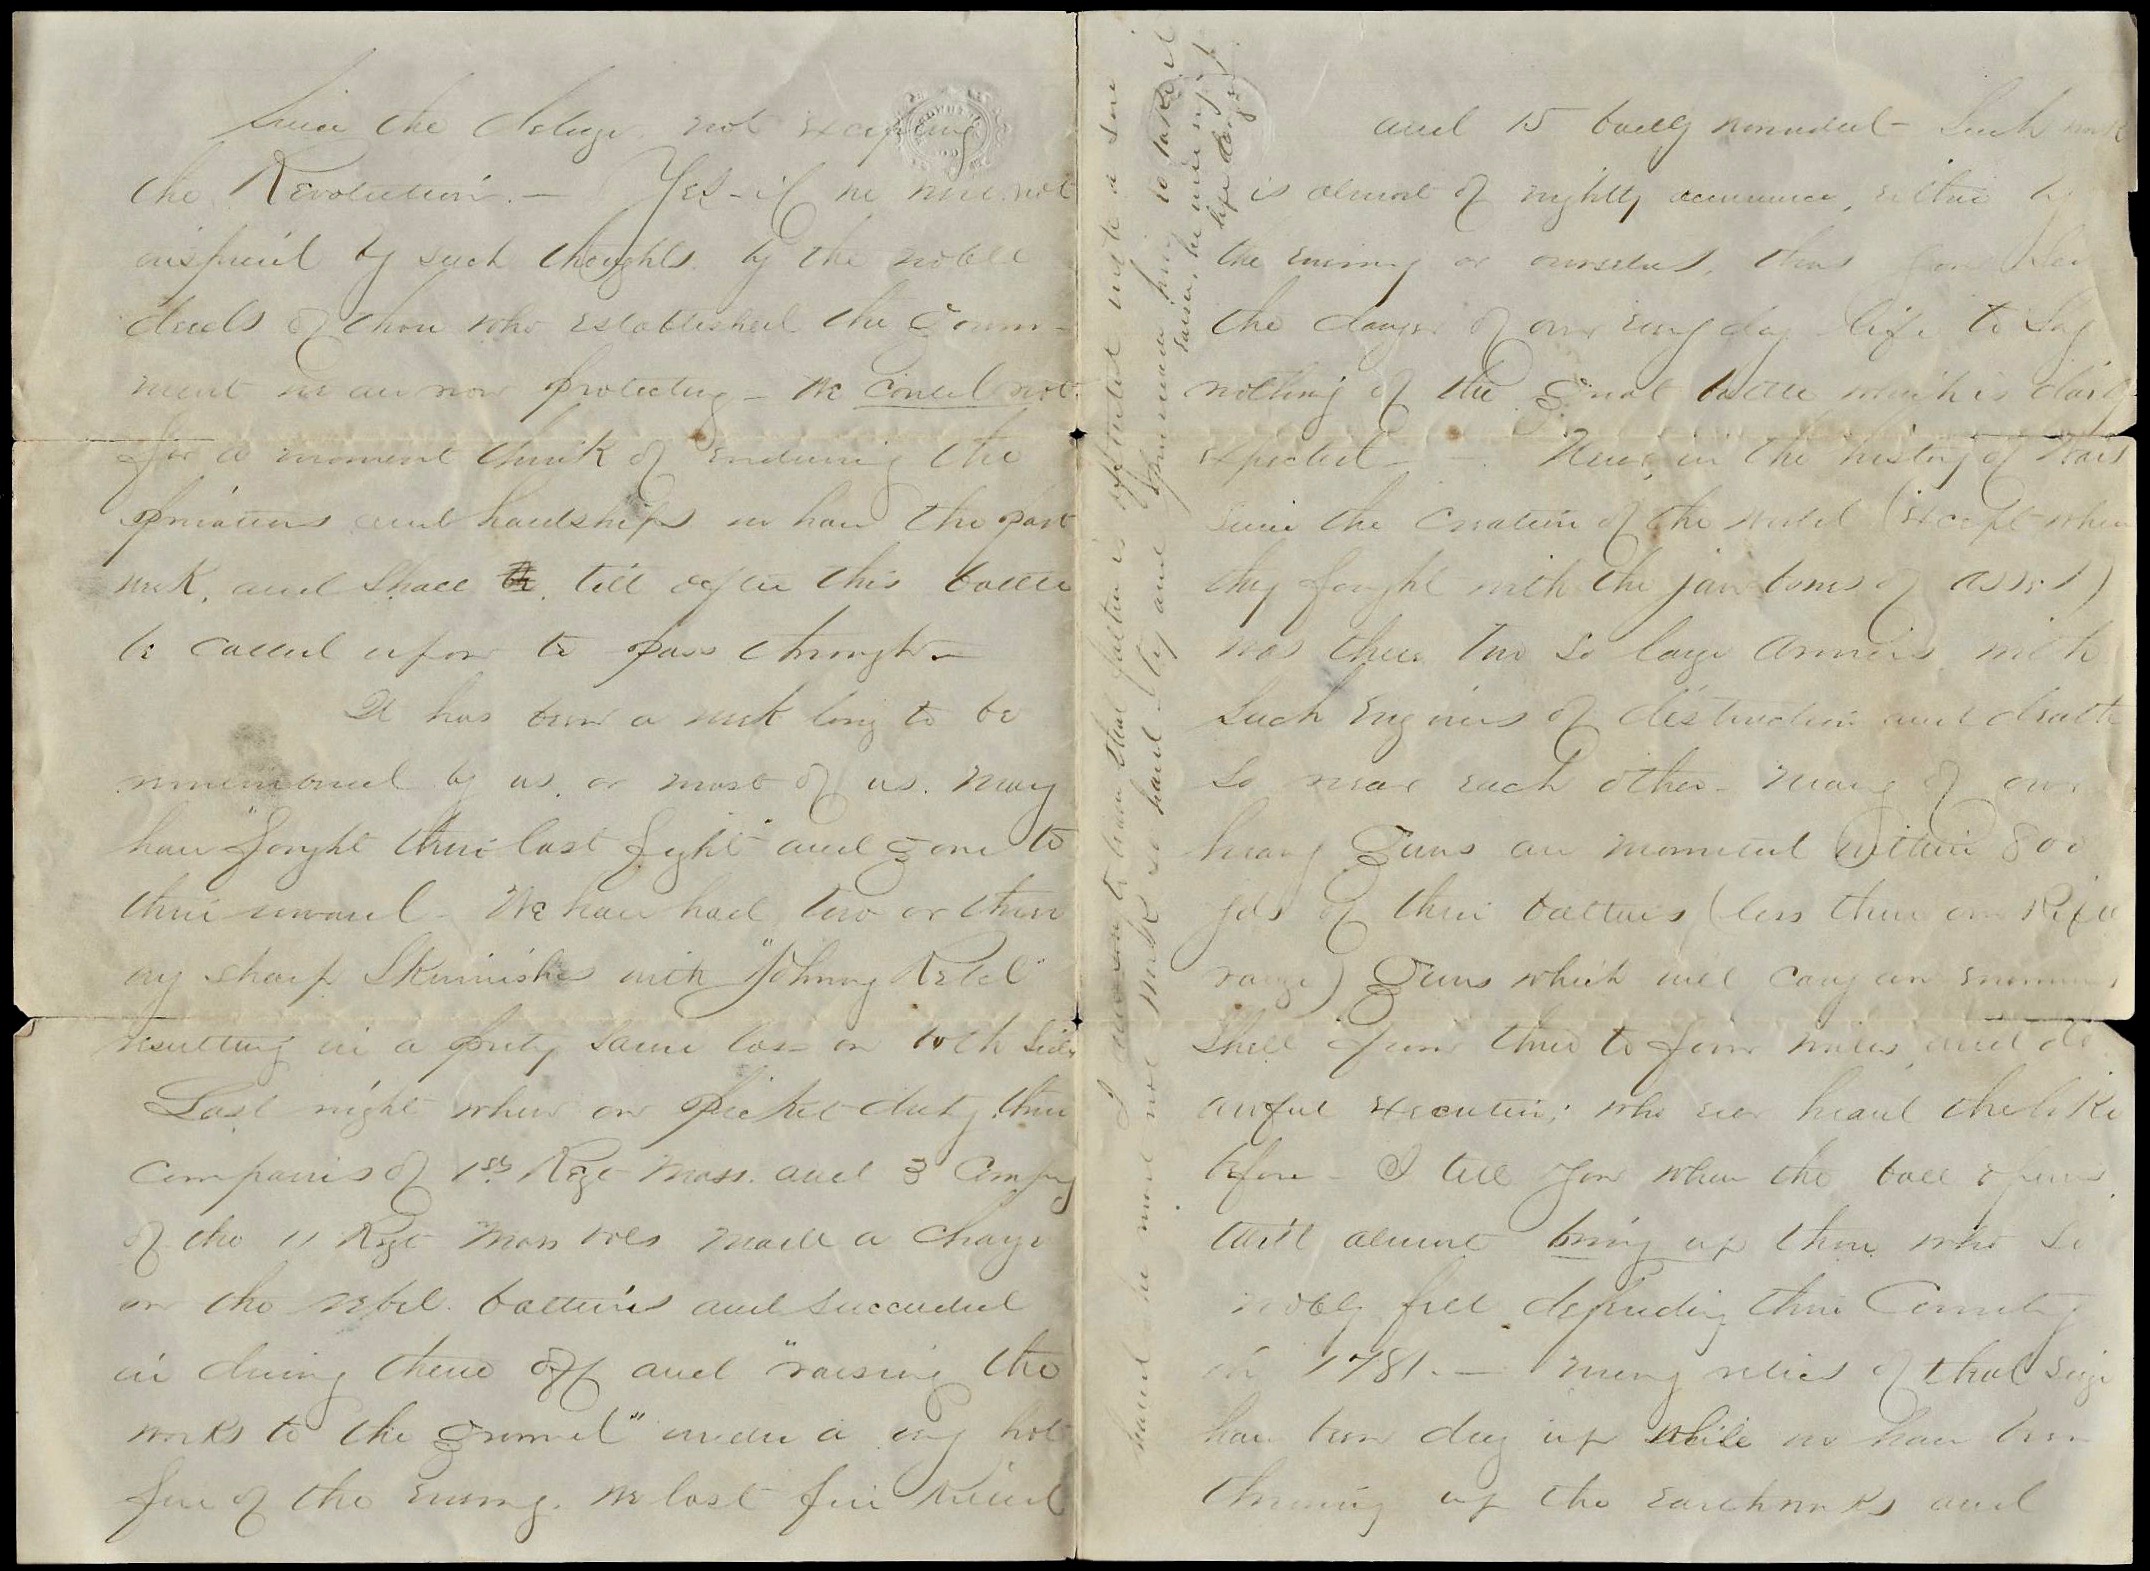 since the deluge. not excepting
the Revolution. — Yes – if we were not
inspired by such thoughts. by the noble
deeds of those who established the Govern-
ment we are now protecting – we could not
for a moment think of enduring the
privations and hardships we have the past
week, and shall till after this battle
be called upon to pass through –
It has been a week long to be
remembered by us, or most of us. Many
have "fought their last fight" and gone to
their reward – We have had two or three
very sharp skirmishes with "Johnny Rebel"
resulting in a pretty same loss on both sides
Last night when on picket duty three
companies of 1st Regt Mass. and 3 Compy
of the 11 Regt Mass Vols made a charge
on the rebel batteries and succeeded
in driving them off and "raising the
works to the ground" under a very hot
fire of the enemy. We lost five killed
and 15 badly wounded – Such work
is almost of nightly occurrence, either by
the enemy or ourselves, thus you see
the danger of our every day life to say
nothing of the great battle which is daily
expected – Never in the history of Wars
since the creation of the world (except when
they fought with the jaw bones of asses)
was there two so large armies with
such engines of destruction and death
so near each other – Many of our
heavy guns are mounted within 800
yds of their batteries (less than our Rifle
range) Guns which will carry an enormous
shell from three to four miles and do
awful execution; who ever heard the like
before – I tell you when the ball opens
twill almost bring up those who so
nobly fell defending their Country
in 1781. — Many relics of that siege
have been dug up while we have been
throwing up the earthworks and
I am sorry to learn that father is afflicted with a sore
hand – he must not work so hard – try and persuade him to take it
easier, he must enjoy
life longer